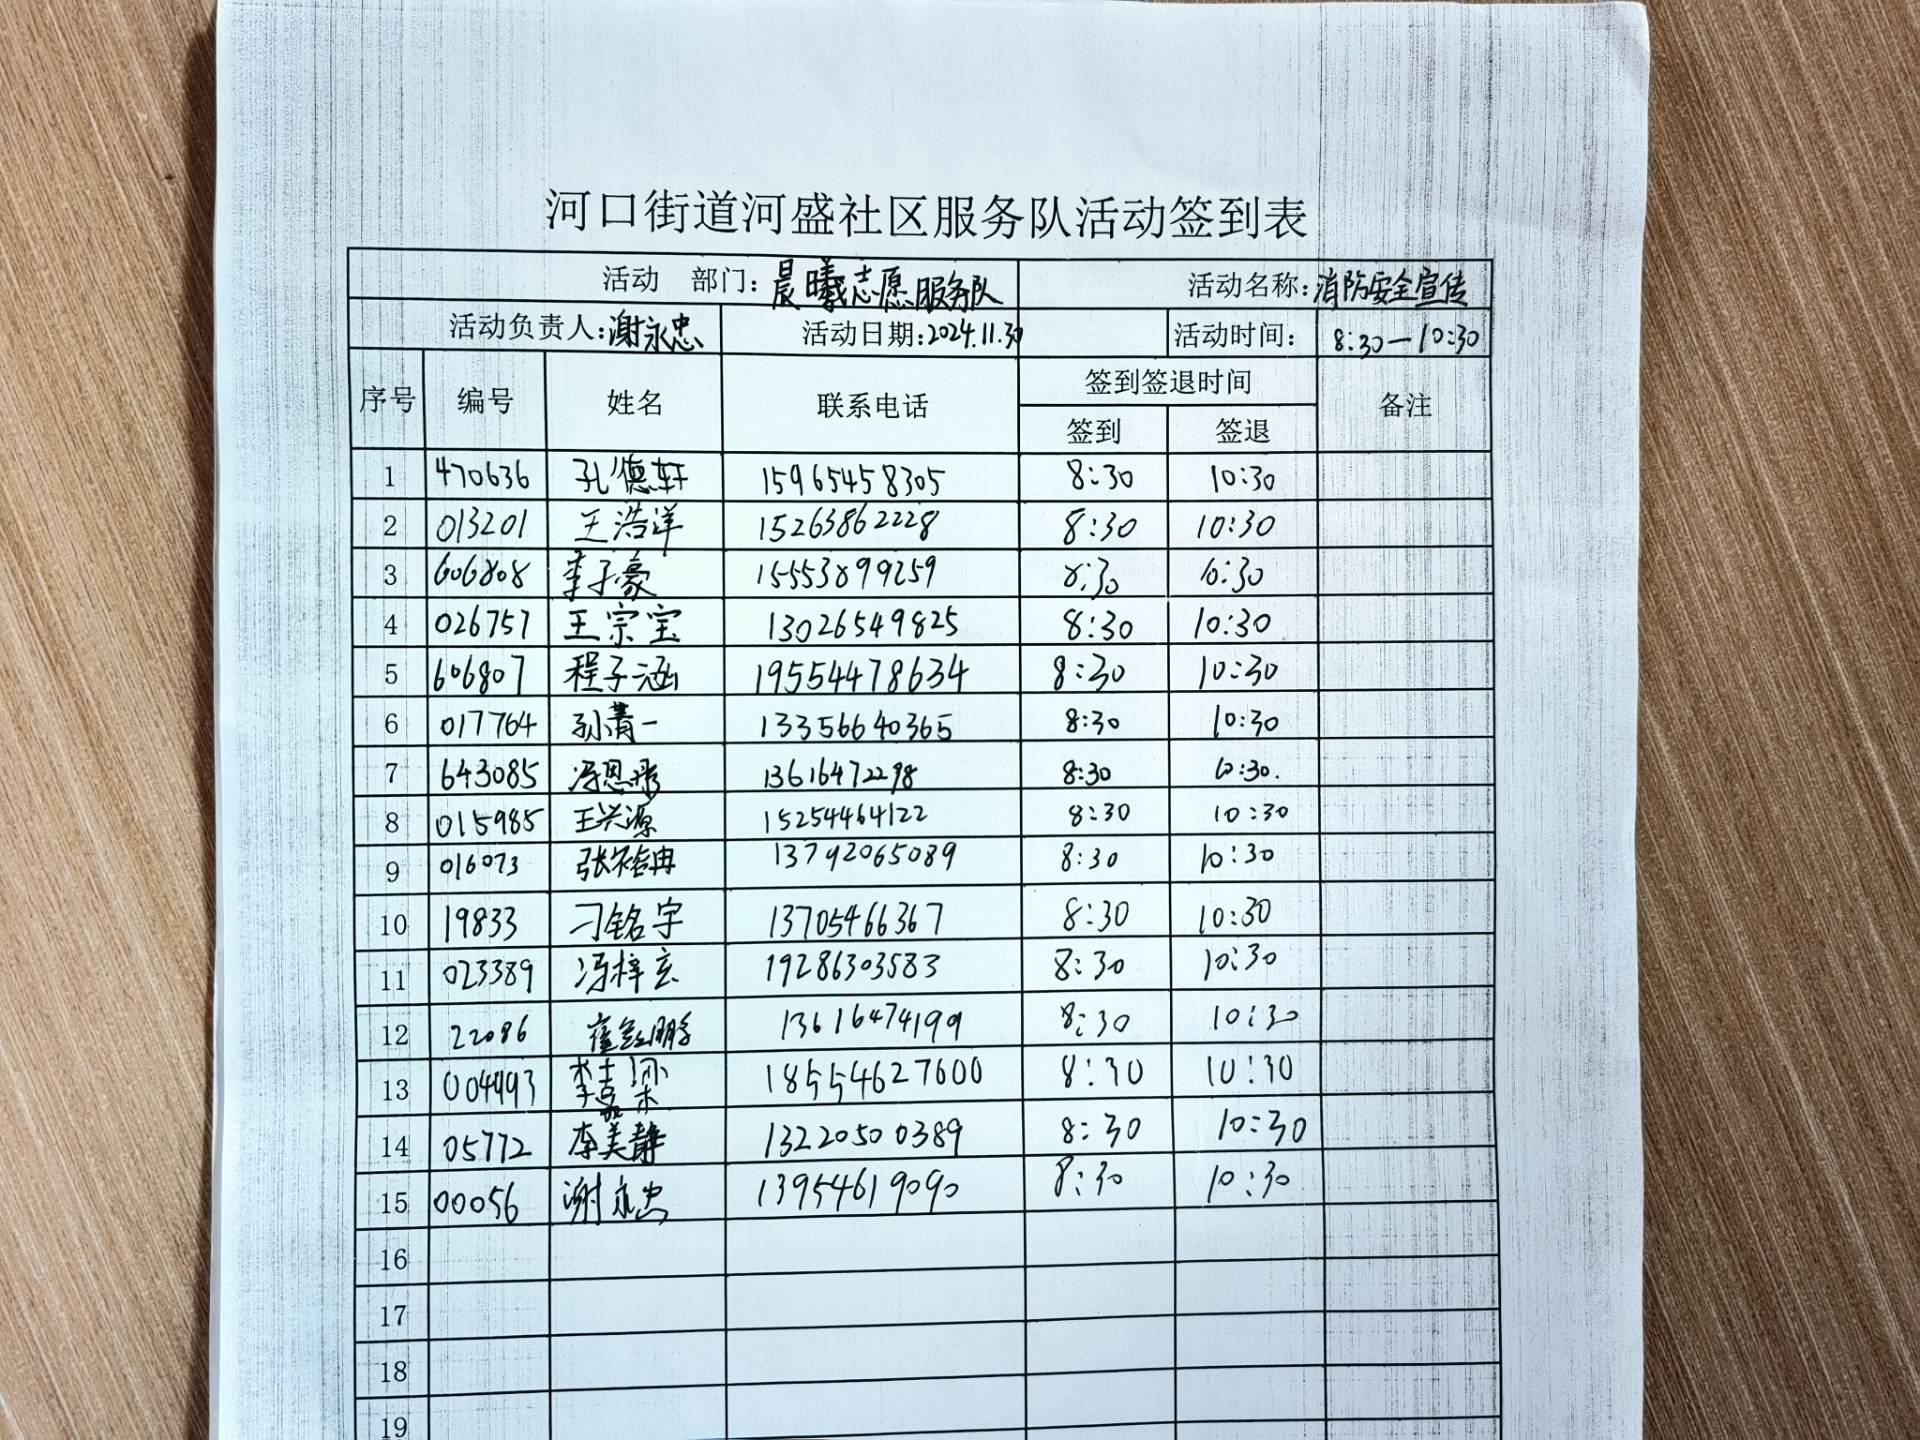 河口街道河盛社区服务队活动签到表
活动 部门：晨曦志愿服务队 活动名称：消防安全宣传
活动负责人：谢永忠 活动日期：2024.11.30 活动时间： 8:30—10:30
序号 编号 姓名 联系电话 签到签退时间 备注
签到 签退
1 470636 孔德轩 15965458305 8:30 10:30
2 013201 王浩洋 15263862228 8:30 10:30
3 606808 李子豪 15553899259 8:30 10:30
4 026757 王宗宝 13026549825 8:30 10:30
5 606807 程子涵 19554478634 8:30 10:30
6 017764 孙菁一 13356640365 8:30 10:30
7 643085 冯恩彤 13616472298 8:30 10:30.
8 015985 王兴源 15254464122 8:30 10:30
9 016073 张裕冉 13792065089 8:30 10:30
10 19833 刁铭宇 13705466367 8:30 10:30
11 023389 冯梓玄 19286303583 8:30 10:30
12 22086 13616474199 8:30 10:30
13 004493 李嘉 18554627600 8:30 10:30
14 05772 李美静 13220500389 8:30 10:30
15 00056 谢永忠 13954619090 8:30 10:30
16
17
18
19